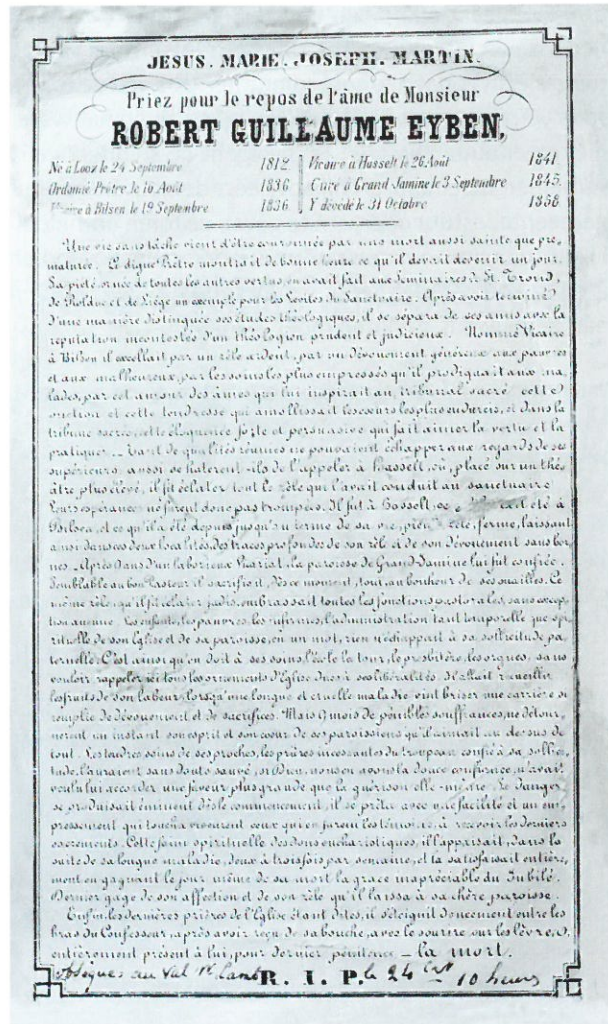 JESUS. MARIE. JOSEPH. MARTIN.
Priez pour le repos de l'âme de Monsieur
ROBERT GUILLAUME EYBEN,
Né à Looz le 24 Septembre 1812
Ordonné Prêtre le 10 Août 1836
Vicaire à Bilsen le 19 Septembre 1836
Vicaire à Hasselt le 26 Août 1841.
Curé à Grand Jamine le 3 Septembre 1845.
Y décédé le 31 Octobre 1858.
Une vie sans tâche vient d'être couronnée par une mort aussi sainte que pré-
maturée. Ce digne Prêtre montrait de bonne heure ce qu'il devait devenir un jour.
Sa piété ornée de toutes les autres vertus, en avait fait aux Séminaires de St. Trond,
de Rolduc et de Liége un exemple pour les Lévites du Sanctuaire. Après avoir terminé
d'une manière distinguée ses études théologiques, il se sépara de ses amis avec la
réputation incontestée d'un théologien prudent et judicieux. Nommé Vicaire
à Bilsen il excellait par un zèle ardent, par un dévouement généreux aux pauvres
et aux malheureux, par les soins les plus empressés qu'il prodiguait aux ma-
lades, par cet amour des âmes qui lui inspirait au tribunal sacré cette
onction et cette tendresse qui amollissait les cœurs les plus endurcis, et dans la
tribune sacrée, cette éloquence forte et persuasive qui fait aimer la vertu et la
pratiquer. _ Tant de qualités réunies ne pouvaient échapper aux regards de ses
supérieurs: aussi se hatèrent-ils de l'appeler à Hasselt, où, placé sur un thé-
âtre plus élevé, il fit éclater tout le zèle qui l'avait conduit au sanctuaire
Leurs espérances ne furent donc pas trompées. Il fut à Hasselt, ce était été à
Bilsen, et ce qu'il a été depuis jusqu'au terme de sa vie, pieux zélé, ferme, laissant
ainsi dans ces deux localités, des traces profondes de son zèle et de son dévouement sans bor-
nes. Après ans d'un laborieux Vicariat, la paroisse de Grand-Jamine lui fut confiée.
Semblable au bon Pasteur il sacrifiait, dès ce moment, tout au bonheur de ses ouailles. Ce
même zèle, qu'il fit éclater jadis, embrassait toutes les fonctions pastorales, sans excep-
tion aucune. Les enfants, les pauvres, les infirmes, l'administration tant temporelle que spi-
rituelle de son Eglise et de sa paroisse, en un mot, rien n'échappait à sa sollicitude pa-
ternelle. C'est ainsi qu'on doit à ses soins, l'école la tour, le presbitère, les orgues, sans
vouloir rappeler ici tous les ornements d'Eglise dues à ses libéralités. Il allait recueillir
les fruits de son labeur, lorsqu'une longue et cruelle maladie vint briser une carrière si
remplie de dévouement et de sacrifices. Mais 9 mois de pénibles souffrances, ne détour-
nèrent un instant son esprit et son cœur de ses paroissiens qu'il aimait au dessus de
tout. Les tendres soins de ses proches, les prières incessantes du troupeau confié à sa sollici-
tude, l'auraient sans doute sauvé, si Dieu, nous en avons la douce confiance, n'avait
voulu lui accorder une faveur plus grande que la guérison elle-même. Le danger
se produisait éminent dès le commencement, il se prêta avec une facilité et un em-
pressement qui toucha vivement ceux qui en furent les témoins, à recevoir les derniers
sacrements. Cette faim spirituelle des dons eucharistiques, il l'apaisait, dans la
suite de sa longue maladie, deux à trois fois par semaine, et la satisfaisait entière-
ment en gagnant le jour même de sa mort la grace inapréciable du Jubilé.
Dernier gage de son affection et de son zèle qu'il laissa à sa chère paroisse.
Enfin, les dernières prières de l'Eglise étant dites, il s'éteignit doucement entre les
bras du Confesseur, après avoir reçu de sa bouche, avec le sourire sur les lèvres,
entièrement présent à lui, pour dernier pénitence _ la mort.
Obsèques au Val R. I. P. le 24 10 heures